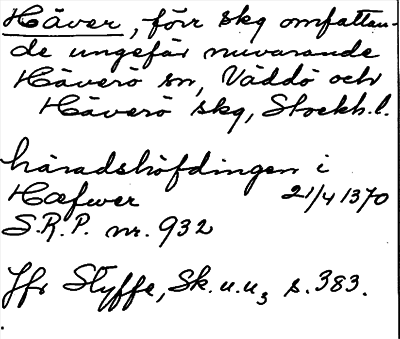 Häver, förr skg omfattan-
de ungefär nuvarande
Häverö sn, Väddö och
Häverö skg, Stockh.l.
häradshöfdingen i
Hæfwer 21/4 1370
S.R.P. nr. 932
Jfr Styffe, Sk.u.u., s. 383.